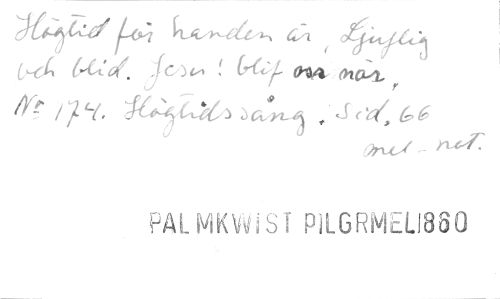 Högtid för handen är, Ljuflig
och blid. Jesu! blif oss när,
No 174. Högtidssång. Sid. 66
mel-not.
PALMKWIST PILGRMEL1860